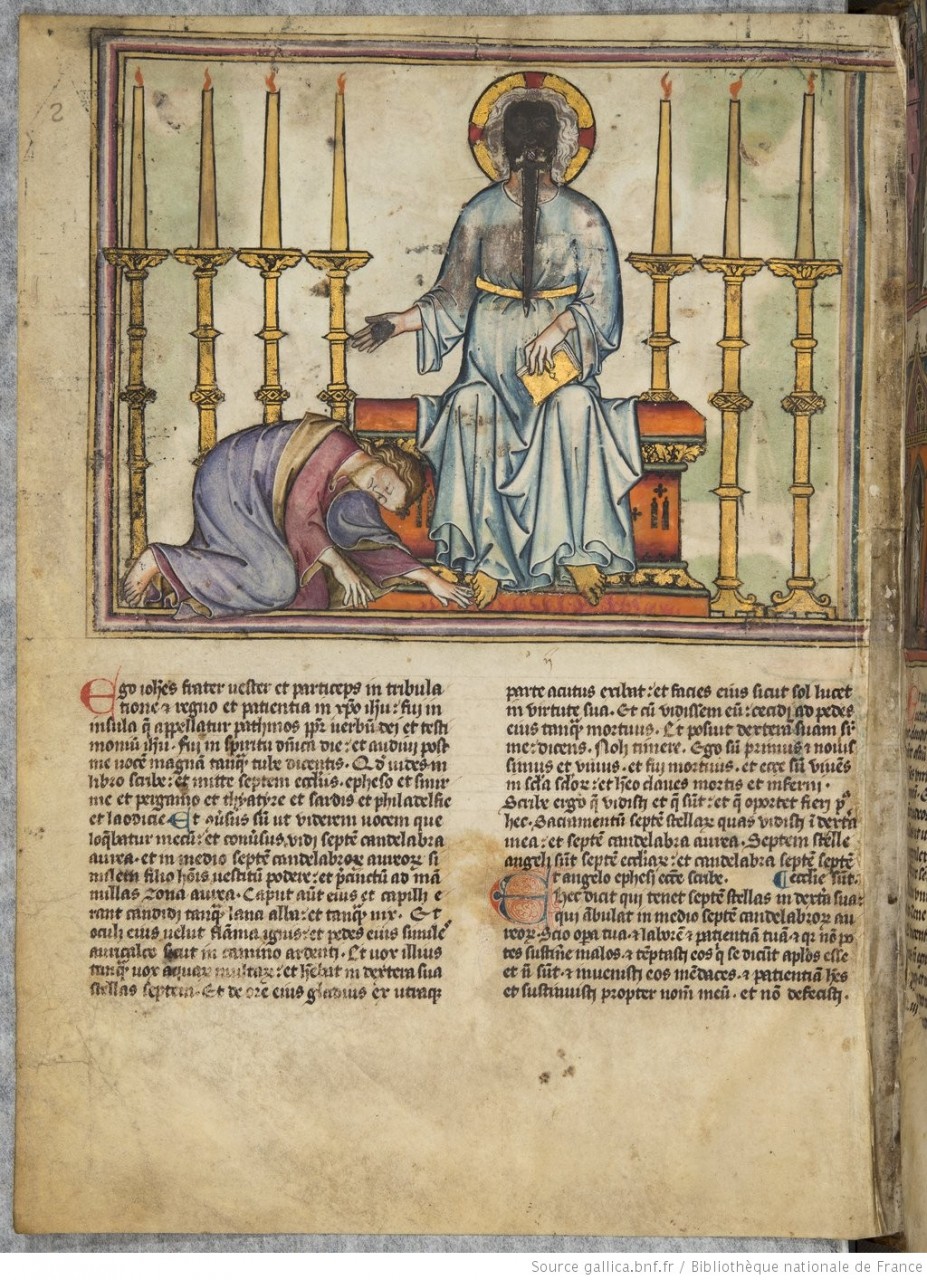 2
Ego ioħes frater uester et particeps in tribula
tione ⁊ regno et patientia in xp̄o ih̄u: fui in
insula q̄ appellatur pathmos ꝓpr̄ uerbū dei et testi
moniū ih̄u. fui in spiritu dn̄ica die: et audiui post
me uocē magnā tanq̄ tube dicentis. Qd̄ uides in
libro scribe: et mitte septem eccl̄iis, epheso et smir
ne et pergamo et thyatyre et sardis et philadelfie
et laodicie. Et c̄uersus sū ut viderem uocem que
loq̄batur mecū: et conuersus vidi septē candelabra
aurea. et in medio septē candelabroꝝ aureoꝝ si
milem filio hōis uestitū podere: et p̄cinctū ad ma
millas zona aurea. Caput aūt eius et capilli e
rant candidi tanq̄ lana alba: et tanq̄ nix. Et
oculi eius uelut flāma ignis: et pedes eius simile
auricalco sicut in camino ardenti. Et uox illius
tanq̄ uox aquaꝝ multaꝝ: et hēbat in dextera sua
stellas septem. Et de ore eius gladius ex utraq̄
parte acutus exibat: et facies eius sicut sol lucet
in virtute sua. Et cū vidissem eū: cecidi ad pedes
eius tanq̄ mortuus. Et posuit dexterā suam sup̄
me: dicens. Noli timere. Ego sū primus ⁊ nouis
simus et viuus. et fui mortuus. et ecce sū viuēs
in scl̄a scl̄oꝝ: et heo claues mortis et inferni.
Scribe ergo q̄ vidisti et q̄ sūt: et q̄ oportet fieri p̄
hec. Sacramentū septē stellaꝝ quas vidisti ī dextā
mea: et septē candelabra aurea. Septem stelle
angeli sūt septē eccl̄iaꝝ: et candelabra septē septē
Et angelo ephesi eccl̄e scribe. eccl̄ie sūt.
Hec dicit qui tenet septē stellas in dextā sua:
qui ābulat in medio septē candelabroꝝ au
reoꝝ. Scio opa tua. ⁊ laborē ⁊ patientiā tuā ⁊ qr̄ nō po
tes sustine malos. ⁊ tēptasti eos q̄ se dicūt apl̄os esse
et n̄ sūt. ⁊ inuenisti eos mēdaces. ⁊ patientiā hes
et sustinuisti propter nom̄ meū. et nō defecisti.
Source gallica.bnf.fr / Bibliothèque nationale de France